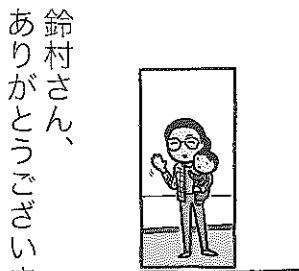 鈴村さん、
ありがとうござい